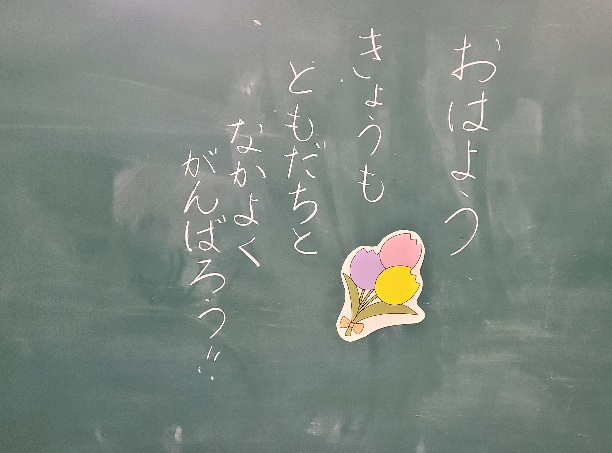 おはよう
きょうも
ともだちと
なかよく
がんばろう!!